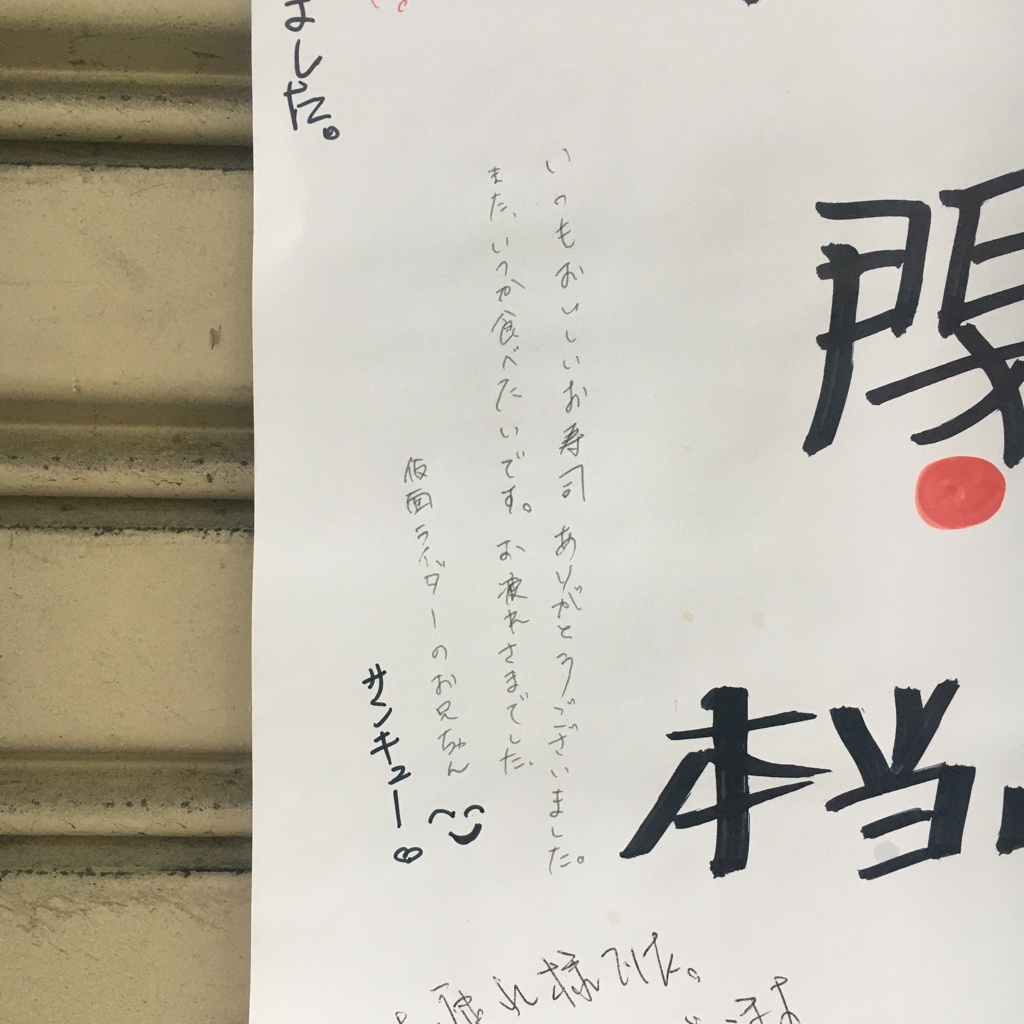 本当
いつもおいしいお寿司 ありがとうございました。
また、いつか食べたいです。お疲れさまでした。
仮面ライダーのお兄ちゃん
サンキュー♡
ました。
疲れ様でした。